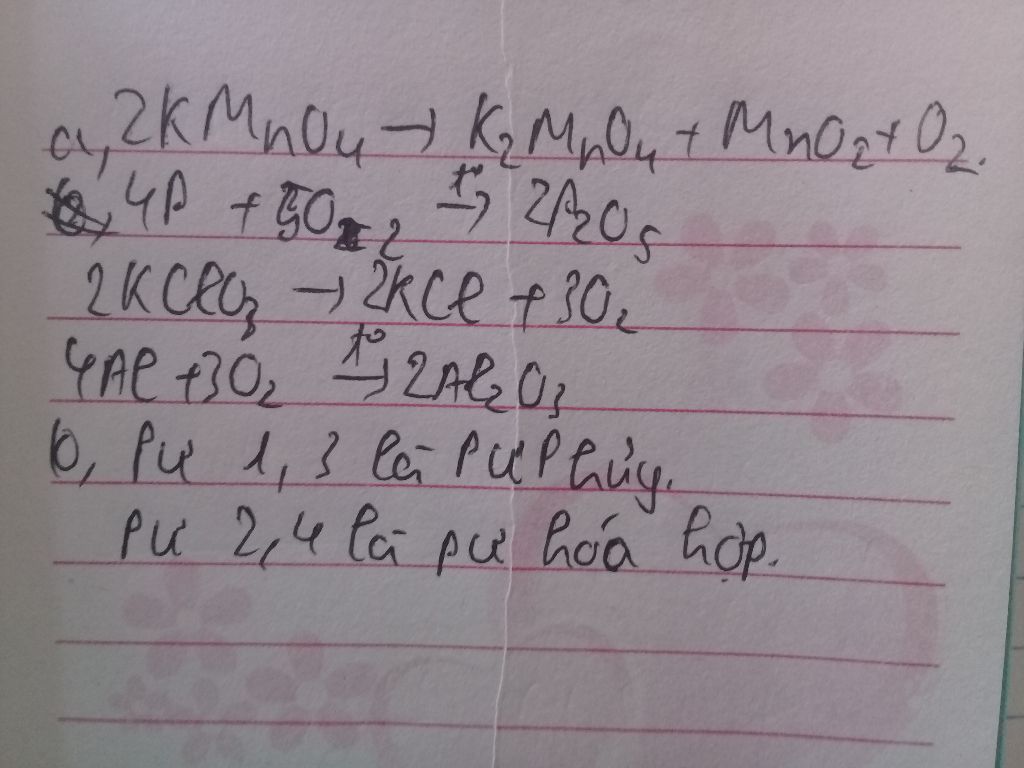 a, 2KMnO₄ → K₂MnO₄ + MnO₂ + O₂.
4P + 5O₂ t°→ 2P₂O₅
2KClO₃ → 2KCl + 3O₂
4Al + 3O₂ t°→ 2Al₂O₃
b, Pư 1, 3 là Pư P hủy.
Pư 2, 4 là pư hóa hợp.